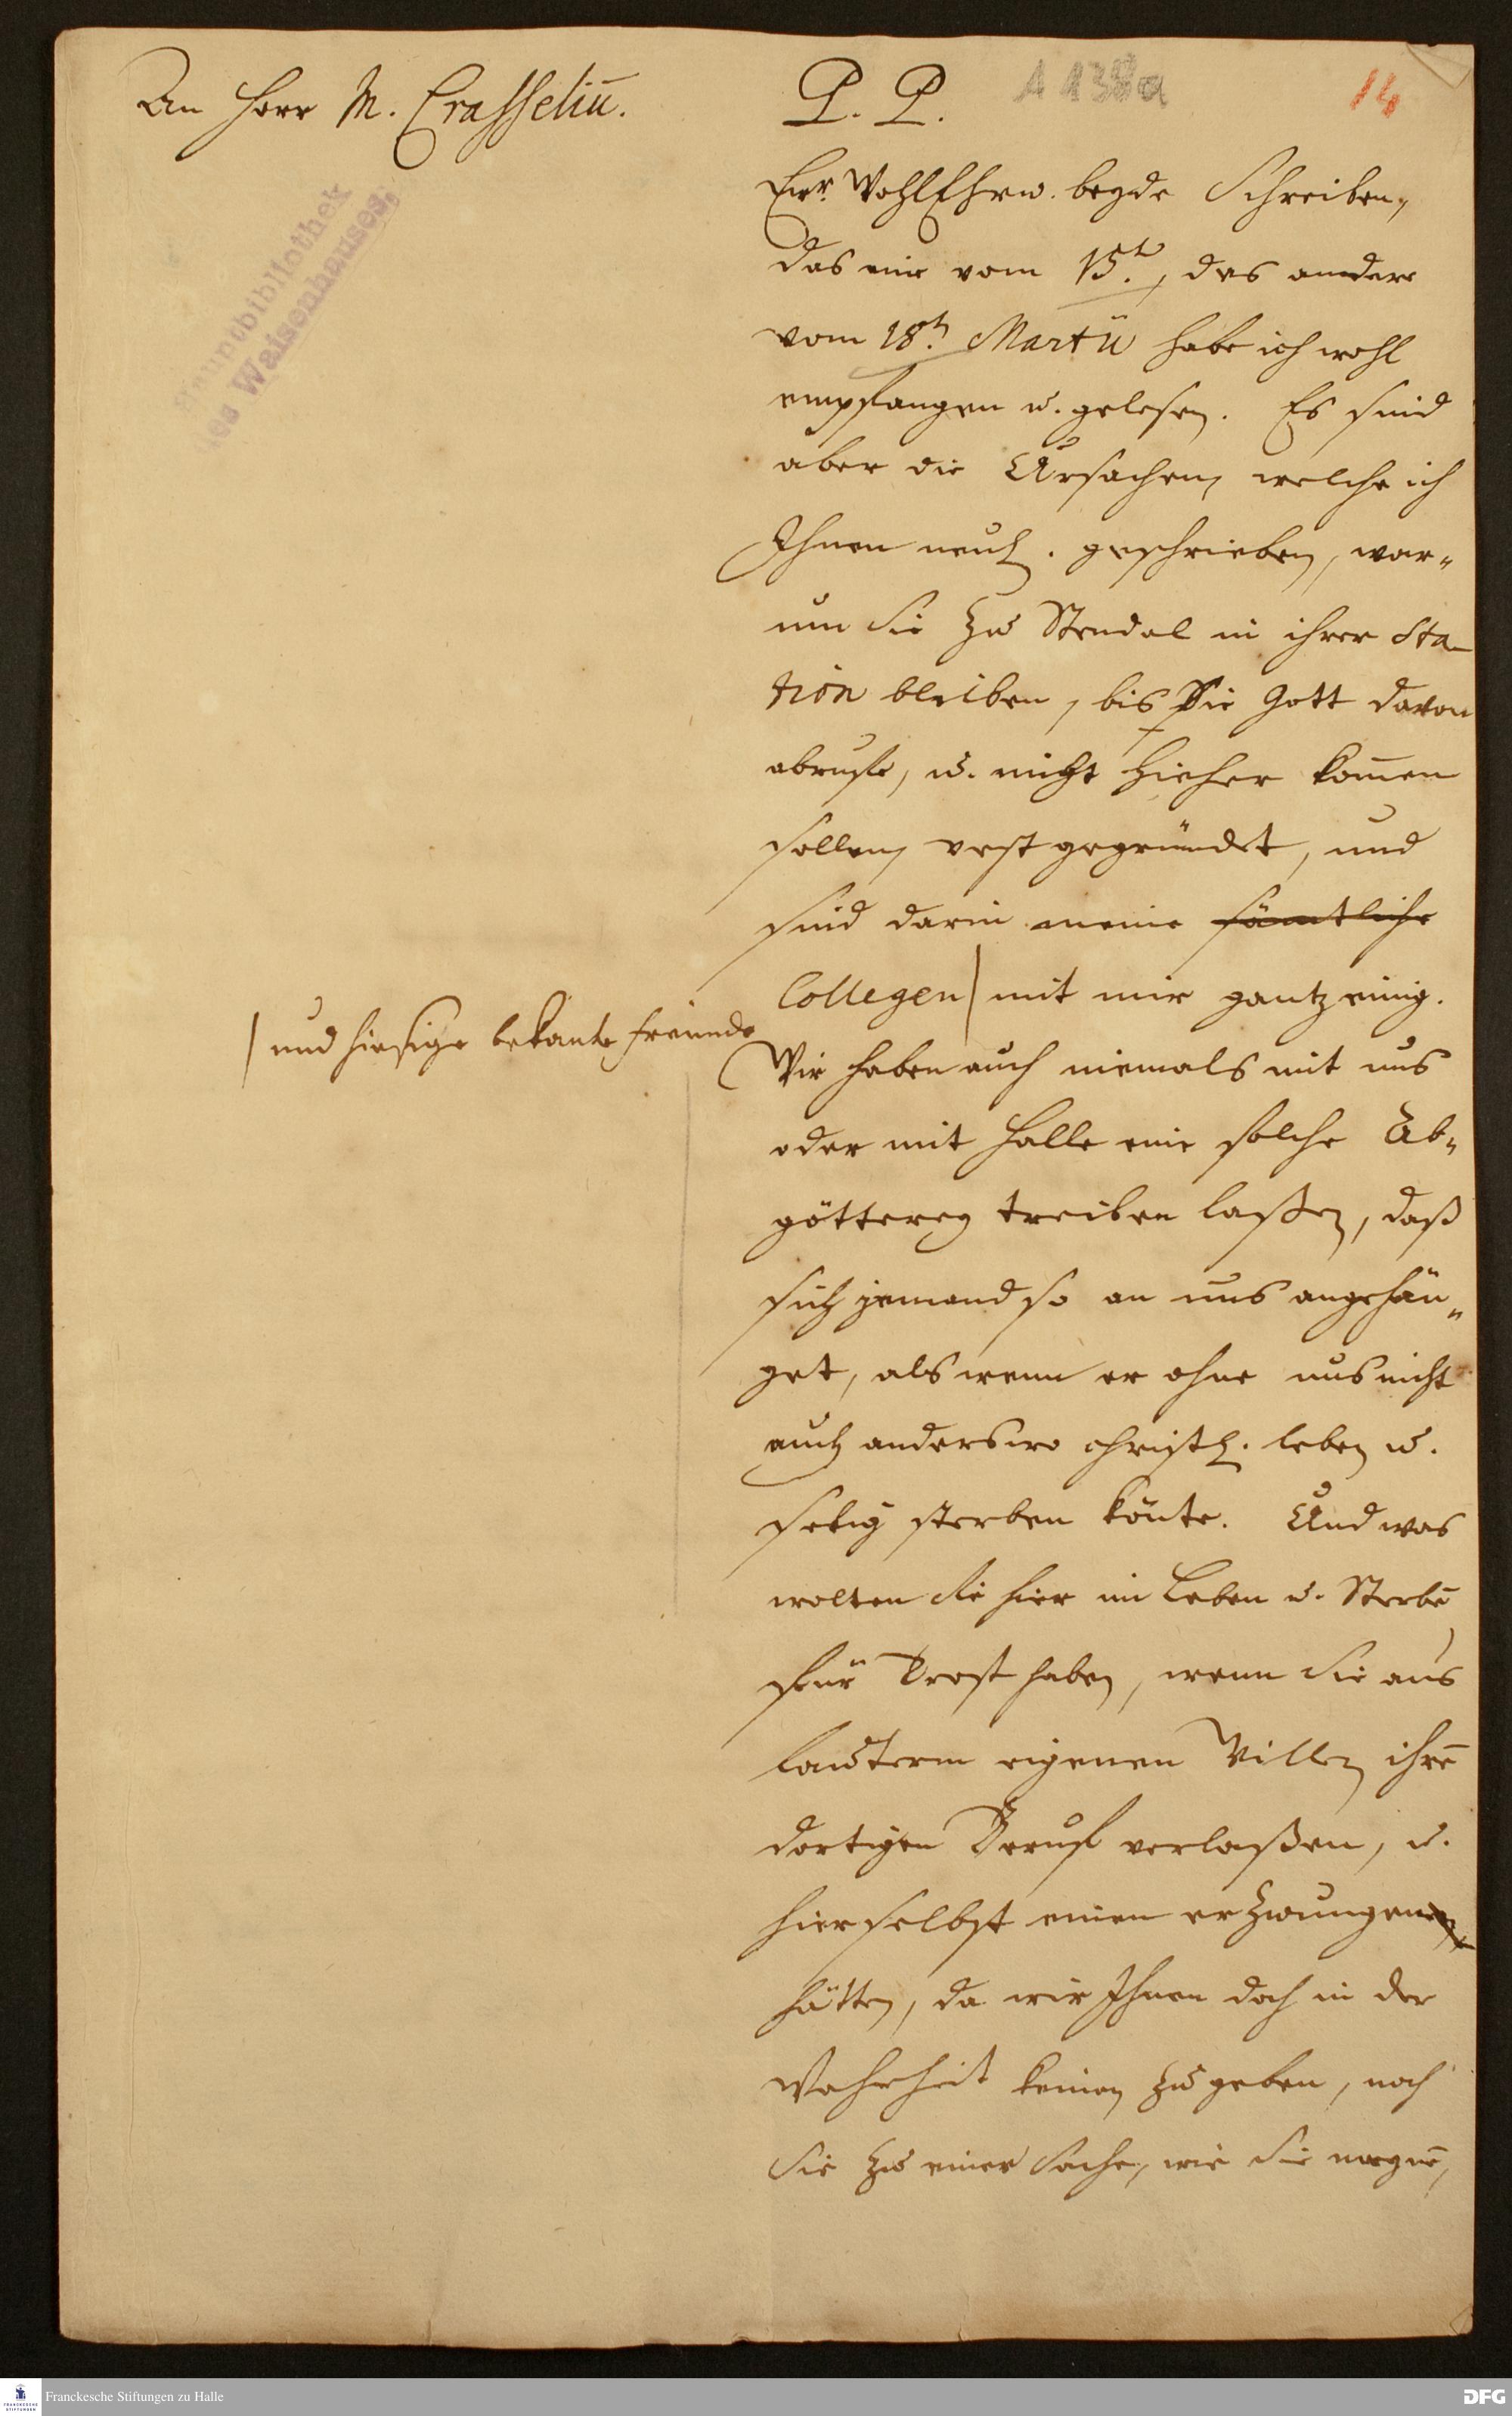 An Herr M. Crasseliū.
P. P.
A 138a
14
Hauptbibliothek
des Waisenhauses
Ewr. WohlEhrw. beyde Schreiben,
das eine vom 15.t, das andere
vom 18.t Martii habe ich wohl
empfangen u. gelesen. Es sind
aber die Ursachen, welche ich
Ihnen neul. geschrieben, war-
um Sie zu Stendal in ihrer Sta-
tion bleiben, bis Sie Gott davon
abruffe, u. nicht hieher kom̄en
sollen, vest gegründet, und
sind darin meine sämtliche
Collegen | mit mir gantz einig.
| und hiesige bekante freunde
Wir haben auch niemals mit uns
oder mit Halle eine solche Ab-
götterey treiben laßen, daß
sich jemand so an uns angehän-
get, als wenn er ohne uns nicht
auch anderswo christl. leben u.
selig sterben könte. Und was
wolten Sie hier im Leben u. Sterbē
für Trost haben, wenn Sie aus
lauterm eigenen Willen ihrē
dortigen Beruf verlaßen, u.
hierselbst einen erzwungen
hätten, da wir Ihnen doch in der
Wahrheit keinen zu geben, noch
Sie zu einer Sache, wie Sie meynē,
Franckesche Stiftungen zu Halle
FRANCKESCHE STIFTUNGEN
DFG